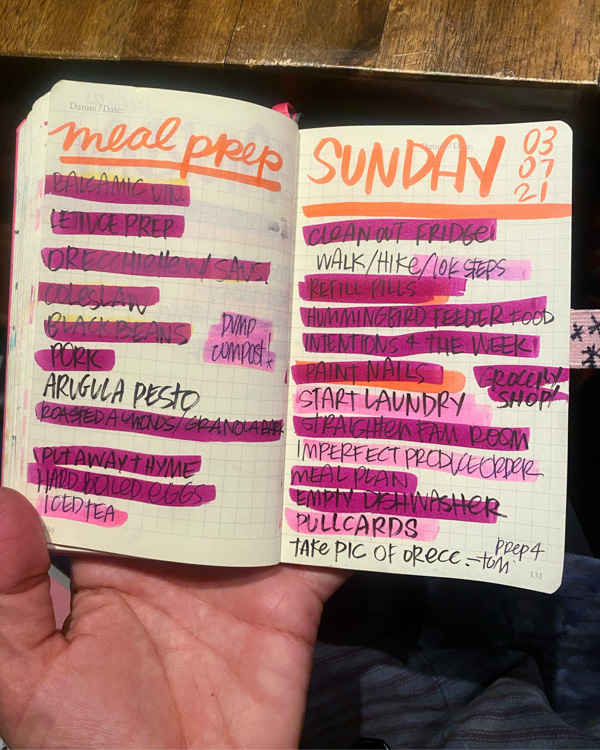 Datum / Date:
meal prep
BALSAMIC VIN.
LETTUCE PREP
ORECCHIETTE W/ SAUS.
COLESLAW
BLACK BEANS
DUMP
COMPOST!
PORK
ARUGULA PESTO
ROASTED ALMONDS/GRANOLA BARK
PUT AWAY THYME
HARD BOILED EGGS
ICED TEA
Datum / Date:
SUNDAY
03
07
21
CLEAN OUT FRIDGE
WALK/HIKE/10K STEPS
REFILL PILLS
HUMMINGBIRD FEEDER FOOD
INTENTIONS 4 THE WEEK
PAINT NAILS
GROCERY
SHOP!
START LAUNDRY
STRAIGHTEN FAM ROOM
IMPERFECT PRODUCE ORDER
MEAL PLAN
EMPTY DISHWASHER
PULL CARDS
TAKE PIC OF ORECC.
prep 4
tom.
131